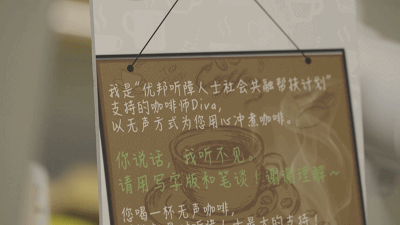 我是“优邦听障人士社会共融帮扶计划”
支持的咖啡师Diva,
以无声方式为您用心冲煮咖啡。
你说话，我听不见。
请用写字版和笔谈！谢谢理解~
您喝一杯无声咖啡，
最大的支持！